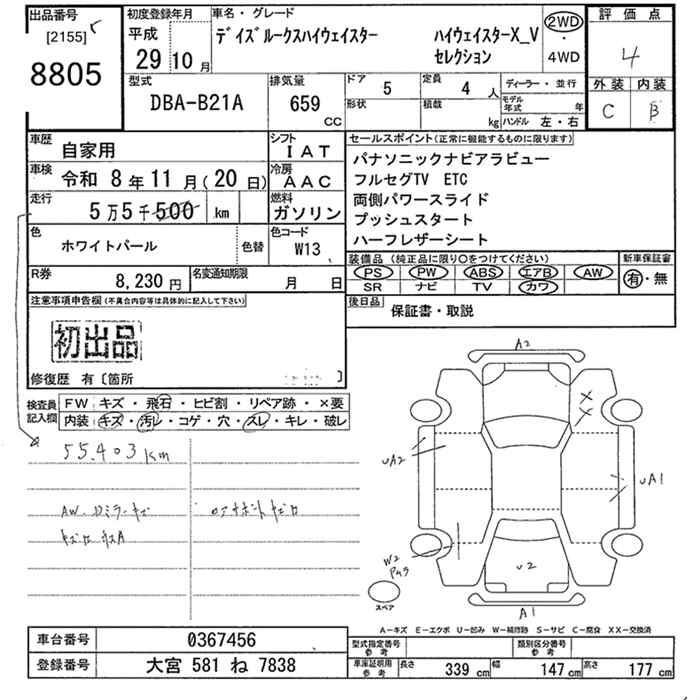 出品番号
[2155]
8805
初度登録年月
平成
29年10月
車名・グレード
デイズルークスハイウェイスター ハイウェイスターX_V
セレクション
2WD
・
4WD
評価点
4
外装 内装
C B
型式
DBA-B21A
排気量
659
CC
ドア
5
定員
4人
形状
積載
kg
ディーラー・並行
モデル年式 年
ハンドル 左・右
車歴
自家用
シフト
IAT
車検
令和 8年11月(20日)
冷房
AAC
走行
5万5千500 km
燃料
ガソリン
色
ホワイトパール
色替
色コード
W13
R券
8,230円
名変通知期限
月 日
セールスポイント(正常に機能するものに限ります)
パナソニックナビアラビュー
フルセグTV ETC
両側パワースライド
プッシュスタート
ハーフレザーシート
装備品(純正品に限り○をつけてください)
新車保証書
PS PW ABS エアB AW
SR ナビ TV カワ
有・無
後日品
保証書・取説
注意事項申告欄(不具合内容等は具体的に記入して下さい)
初出品
修復歴 有〔箇所 〕
検査員記入欄
FW キズ・飛石・ヒビ割・リペア跡・×要
内装 キズ・汚レ・コゲ・穴・ズレ・キレ・破レ
55,403km
AW.
A2
X
X
UA2
UA1
W2
U2
A1
スペア
A-キズ E-エクボ U-凹み W-補修跡 S-サビ C-腐食 XX-交換済
車台番号
0367456
登録番号
大宮 581 ね 7838
型式指定番号
参考
類別区分番号
参考
車庫証明用
参考
長さ 339cm 幅 147cm 高さ 177cm